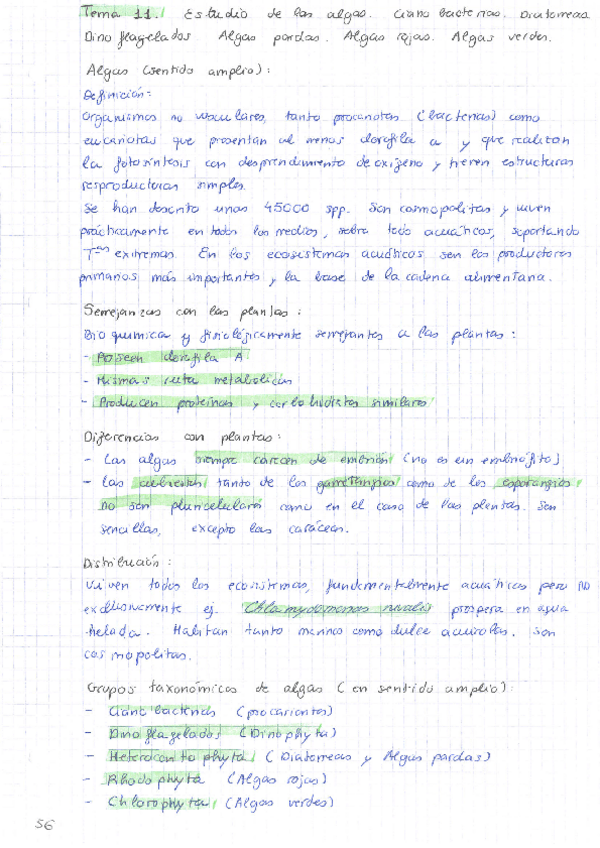 Tema 11. Estudio de las algas. Cianobacterias. Diatomeas
Dinoflagelados Algas pardas. Algas rojas. Algas verdes.
Algas (sentido amplio):
Definición:
Organismos no vasculares, tanto procariotas (bacterias) como
eucariotas que presentan al menos clorofila a y que realizan
la fotosíntesis con desprendimiento de oxígeno y tienen estructuras
reproductoras simples.
Se han descrito unas 45000 spp. Son cosmopolitas y viven
prácticamente en todos los medios, sobre todo acuáticos, soportando
Tªˢ extremas. En los ecosistemas acuáticos son los productores
primarios más importantes y la base de la cadena alimentaria.
Semejanzas con las plantas:
Bioquímica y fisiológicamente semejantes a las plantas:
- Poseen clorofila A
- Mismas ruta metabólicas
- Producen proteínas y carbohidratos similares
Diferencias con plantas:
- Las algas siempre carecen de embrión (no es un embriófito)
- Las cubiertas tanto de los gametangios como de los esporangios
no son pluricelulares como en el caso de las plantas. Son
sencillas, excepto las caráceas.
Distribución:
Viven todos los ecosistemas, fundamentalmente acuáticos pero no
exclusivamente ej. Chlamydomonas nivalis prospera en agua
helada. Habitan tanto marinos como dulce acuícolas. Son
cosmopolitas.
Grupos taxonómicos de algas (en sentido amplio):
- Cianobacterias (procariontes)
- Dinoflagelados (Dinophyta)
- Heterocontophyta (Diatomeas y Algas pardas)
- Rhodophyta (Algas rojas)
- Chlorophyta (Algas verdes)
56